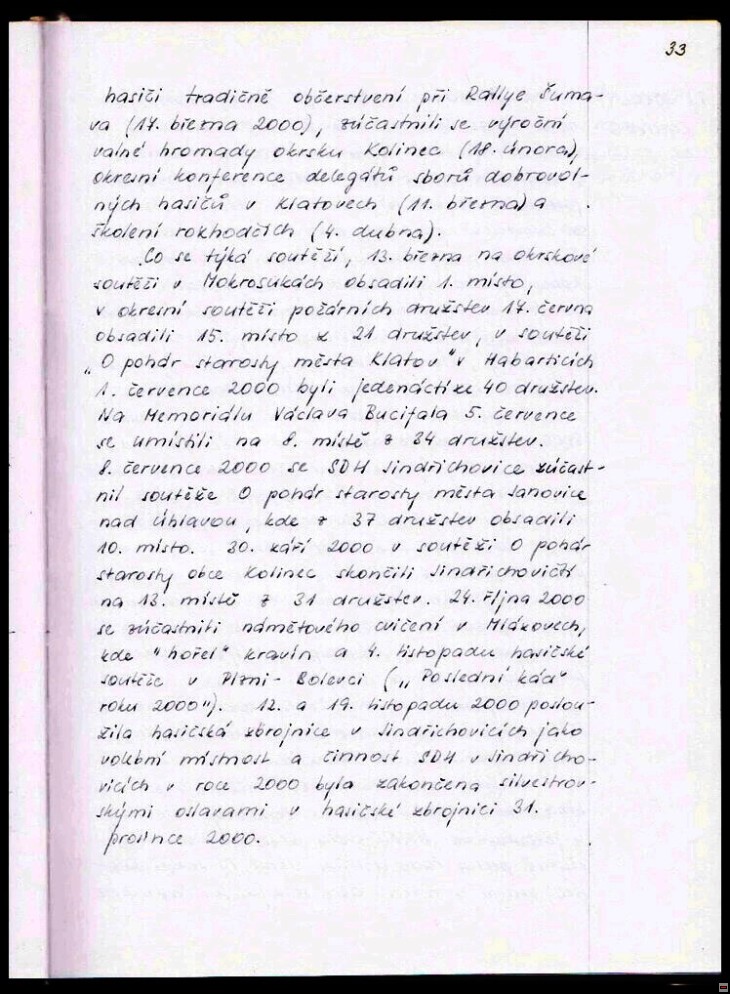 33
hasiči tradičně občerstvení při Rallye Šuma-
va (17. března 2000), zúčastnili se výroční
valné hromady okrsku Kolinec (18. února),
okresní konference delegátů sborů dobrovol-
ných hasičů v Klatovech (11. března) a
školení rozhodčích (4. dubna).
Co se týká soutěží, 13. března na okrskové
soutěži v Mokrosukách obsadili 1. místo,
v okresní soutěži požárních družstev 17. června
obsadili 15. místo z 21 družstev, v soutěži
„O pohár starosty města Klatov" v Habarticích
1. července 2000 byli jedenáctí ze 40 družstev.
Na Memoriálu Václava Bucifala 5. července
se umístili na 8. místě z 34 družstev.
8. července 2000 se SDH Jindřichovice zúčast-
nil soutěže O pohár starosty města Janovice
nad Úhlavou, kde z 37 družstev obsadili
10. místo. 30. září 2000 v soutěži O pohár
starosty obce Kolinec skončili Jindřichovičtí
na 13. místě z 31 družstev. 24. října 2000
se zúčastnili námětového cvičení v Mlázovech,
kde "hořel" kravín a 4. listopadu hasičské
soutěže v Plzni - Bolevci („Poslední káď
roku 2000"). 12. a 19. listopadu 2000 poslou-
žila hasičská zbrojnice v Jindřichovicích jako
volební místnost a činnost SDH v Jindřicho-
vicích v roce 2000 byla zakončena silvestrov-
skými oslavami v hasičské zbrojnici 31.
prosince 2000.